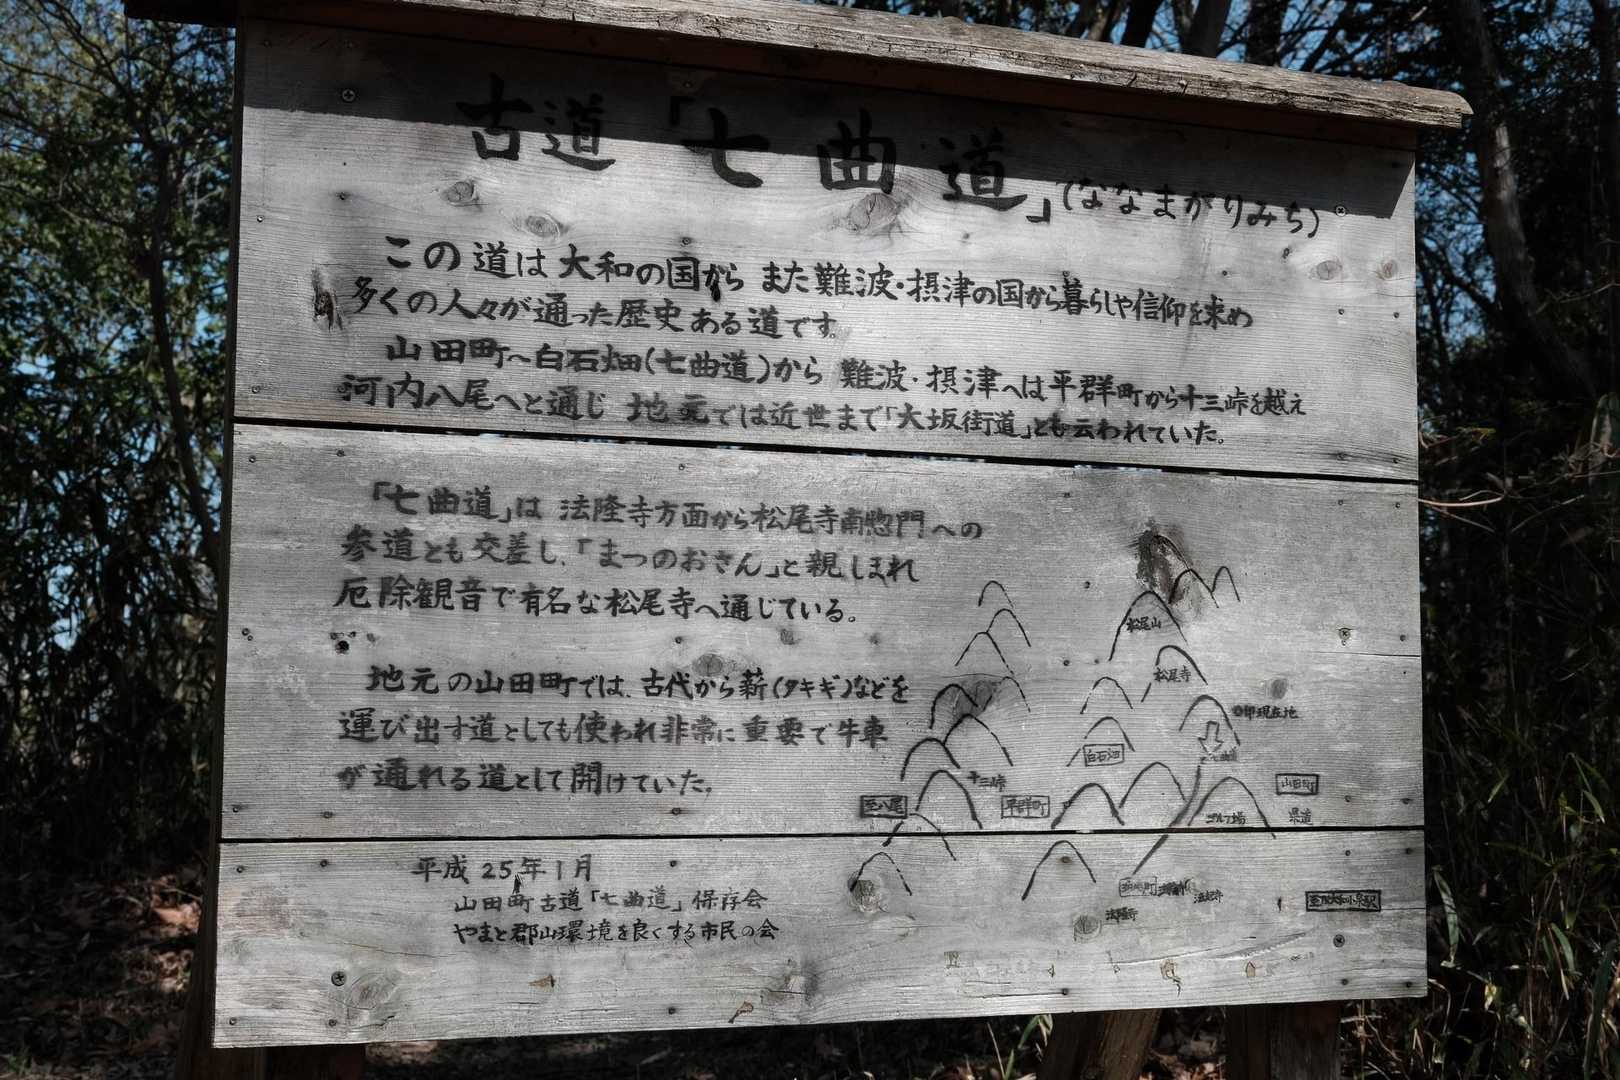 古道「七曲道」(ななまがりみち)
この道は大和の国から また難波・摂津の国から暮らしや信仰を求め
多くの人々が通った歴史ある道です。
山田町〜白石畑(七曲道)から 難波・摂津へは平群町から十三峠を越え
河内八尾へと通じ 地元では近世まで「大坂街道」とも云われていた。
「七曲道」は 法隆寺方面から松尾寺南惣門への
参道とも交差し、「まつのおさん」と親しまれ
厄除観音で有名な松尾寺へ通じている。
地元の山田町では、古代から薪(タキギ)などを
運び出す道としても使われ非常に重要で牛車
が通れる道として開けていた。
松尾山
松尾寺
◎印現在地
白石畑
七曲道
十三峠
山田町
至八尾
平群町
ゴルフ場
県道
法起寺
法隆寺
至JR大和小泉駅
平成25年1月
山田町古道「七曲道」保存会
やまと郡山環境を良くする市民の会